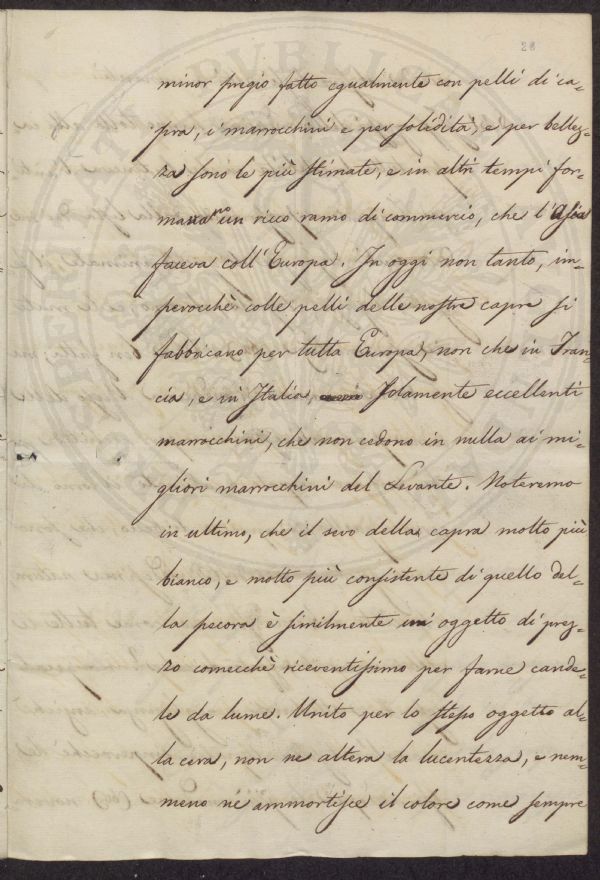 28
minor pregio fatto egualmente con pelli di ca-
pra, i marrocchini e per solidità, e per bellez-
za sono le più stimate, e in altri tempi for-
mavano un ricco ramo di commercio, che l'Asia
faceva coll'Europa. In oggi non tanto, im-
perocchè colle pelli delle nostre capre si
fabbricano per tutta Europa, non che in Fran-
cia, e in Italia, solamente eccellenti
marrocchini, che non cedono in nulla ai mi-
gliori marrocchini del Levante. Noteremo
in ultimo, che il sevo della capra molto più
bianco, e molto più consistente di quello del-
la pecora è similmente un'oggetto di prez-
zo comecchè riceventissimo per farne cande-
le da lume. Unito per lo stesso oggetto al-
la cera, non ne altera la lucentezza, e nem-
meno ne ammortisce il colore come sempre